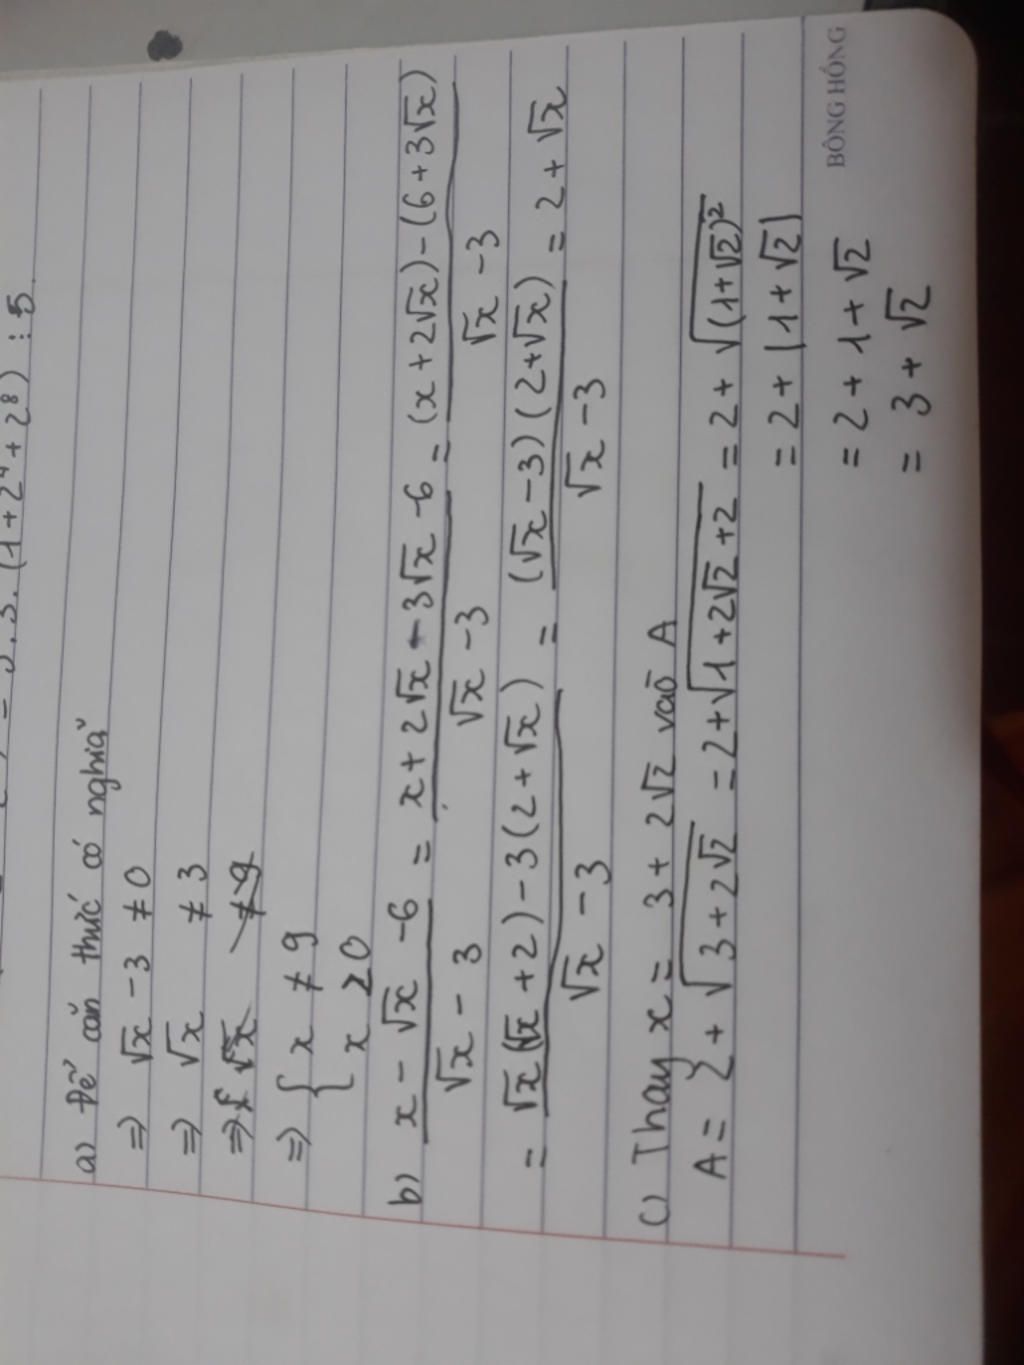 = 5.3.(1+2⁴+2⁸) ⋮ 5.
a) Để căn thức có nghĩa
⇒ √x - 3 ≠ 0
⇒ √x ≠ 3
⇒ { √x ≠ 9
⇒ { x ≠ 9
x ≥ 0
b) (x - √x - 6)/(√x - 3) = (x + 2√x - 3√x - 6)/(√x - 3) = ((x + 2√x) - (6 + 3√x))/(√x - 3)
= (√x(√x + 2) - 3(2 + √x))/(√x - 3) = ((√x - 3)(2 + √x))/(√x - 3) = 2 + √x
c) Thay x = 3 + 2√2 vào A
A = 2 + √(3 + 2√2) = 2 + √(1 + 2√2 + 2) = 2 + √((1 + √2)²)
= 2 + |1 + √2|
= 2 + 1 + √2
= 3 + √2
BÔNG HỒNG